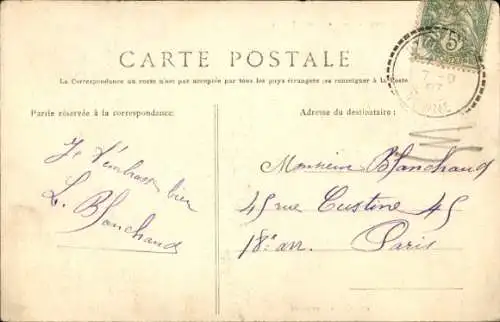 CARTE POSTALE
La Correspondance au recto n'est pas acceptée par tous les pays étrangers (se renseigner à la Poste
Partie réservée à la correspondance:
Adresse du destinataire:
Je t'embrasse bien
L. Blanchaud
Monsieur Blanchaud
45 rue Custine 45
18e arr.
Paris
5
7-9
07